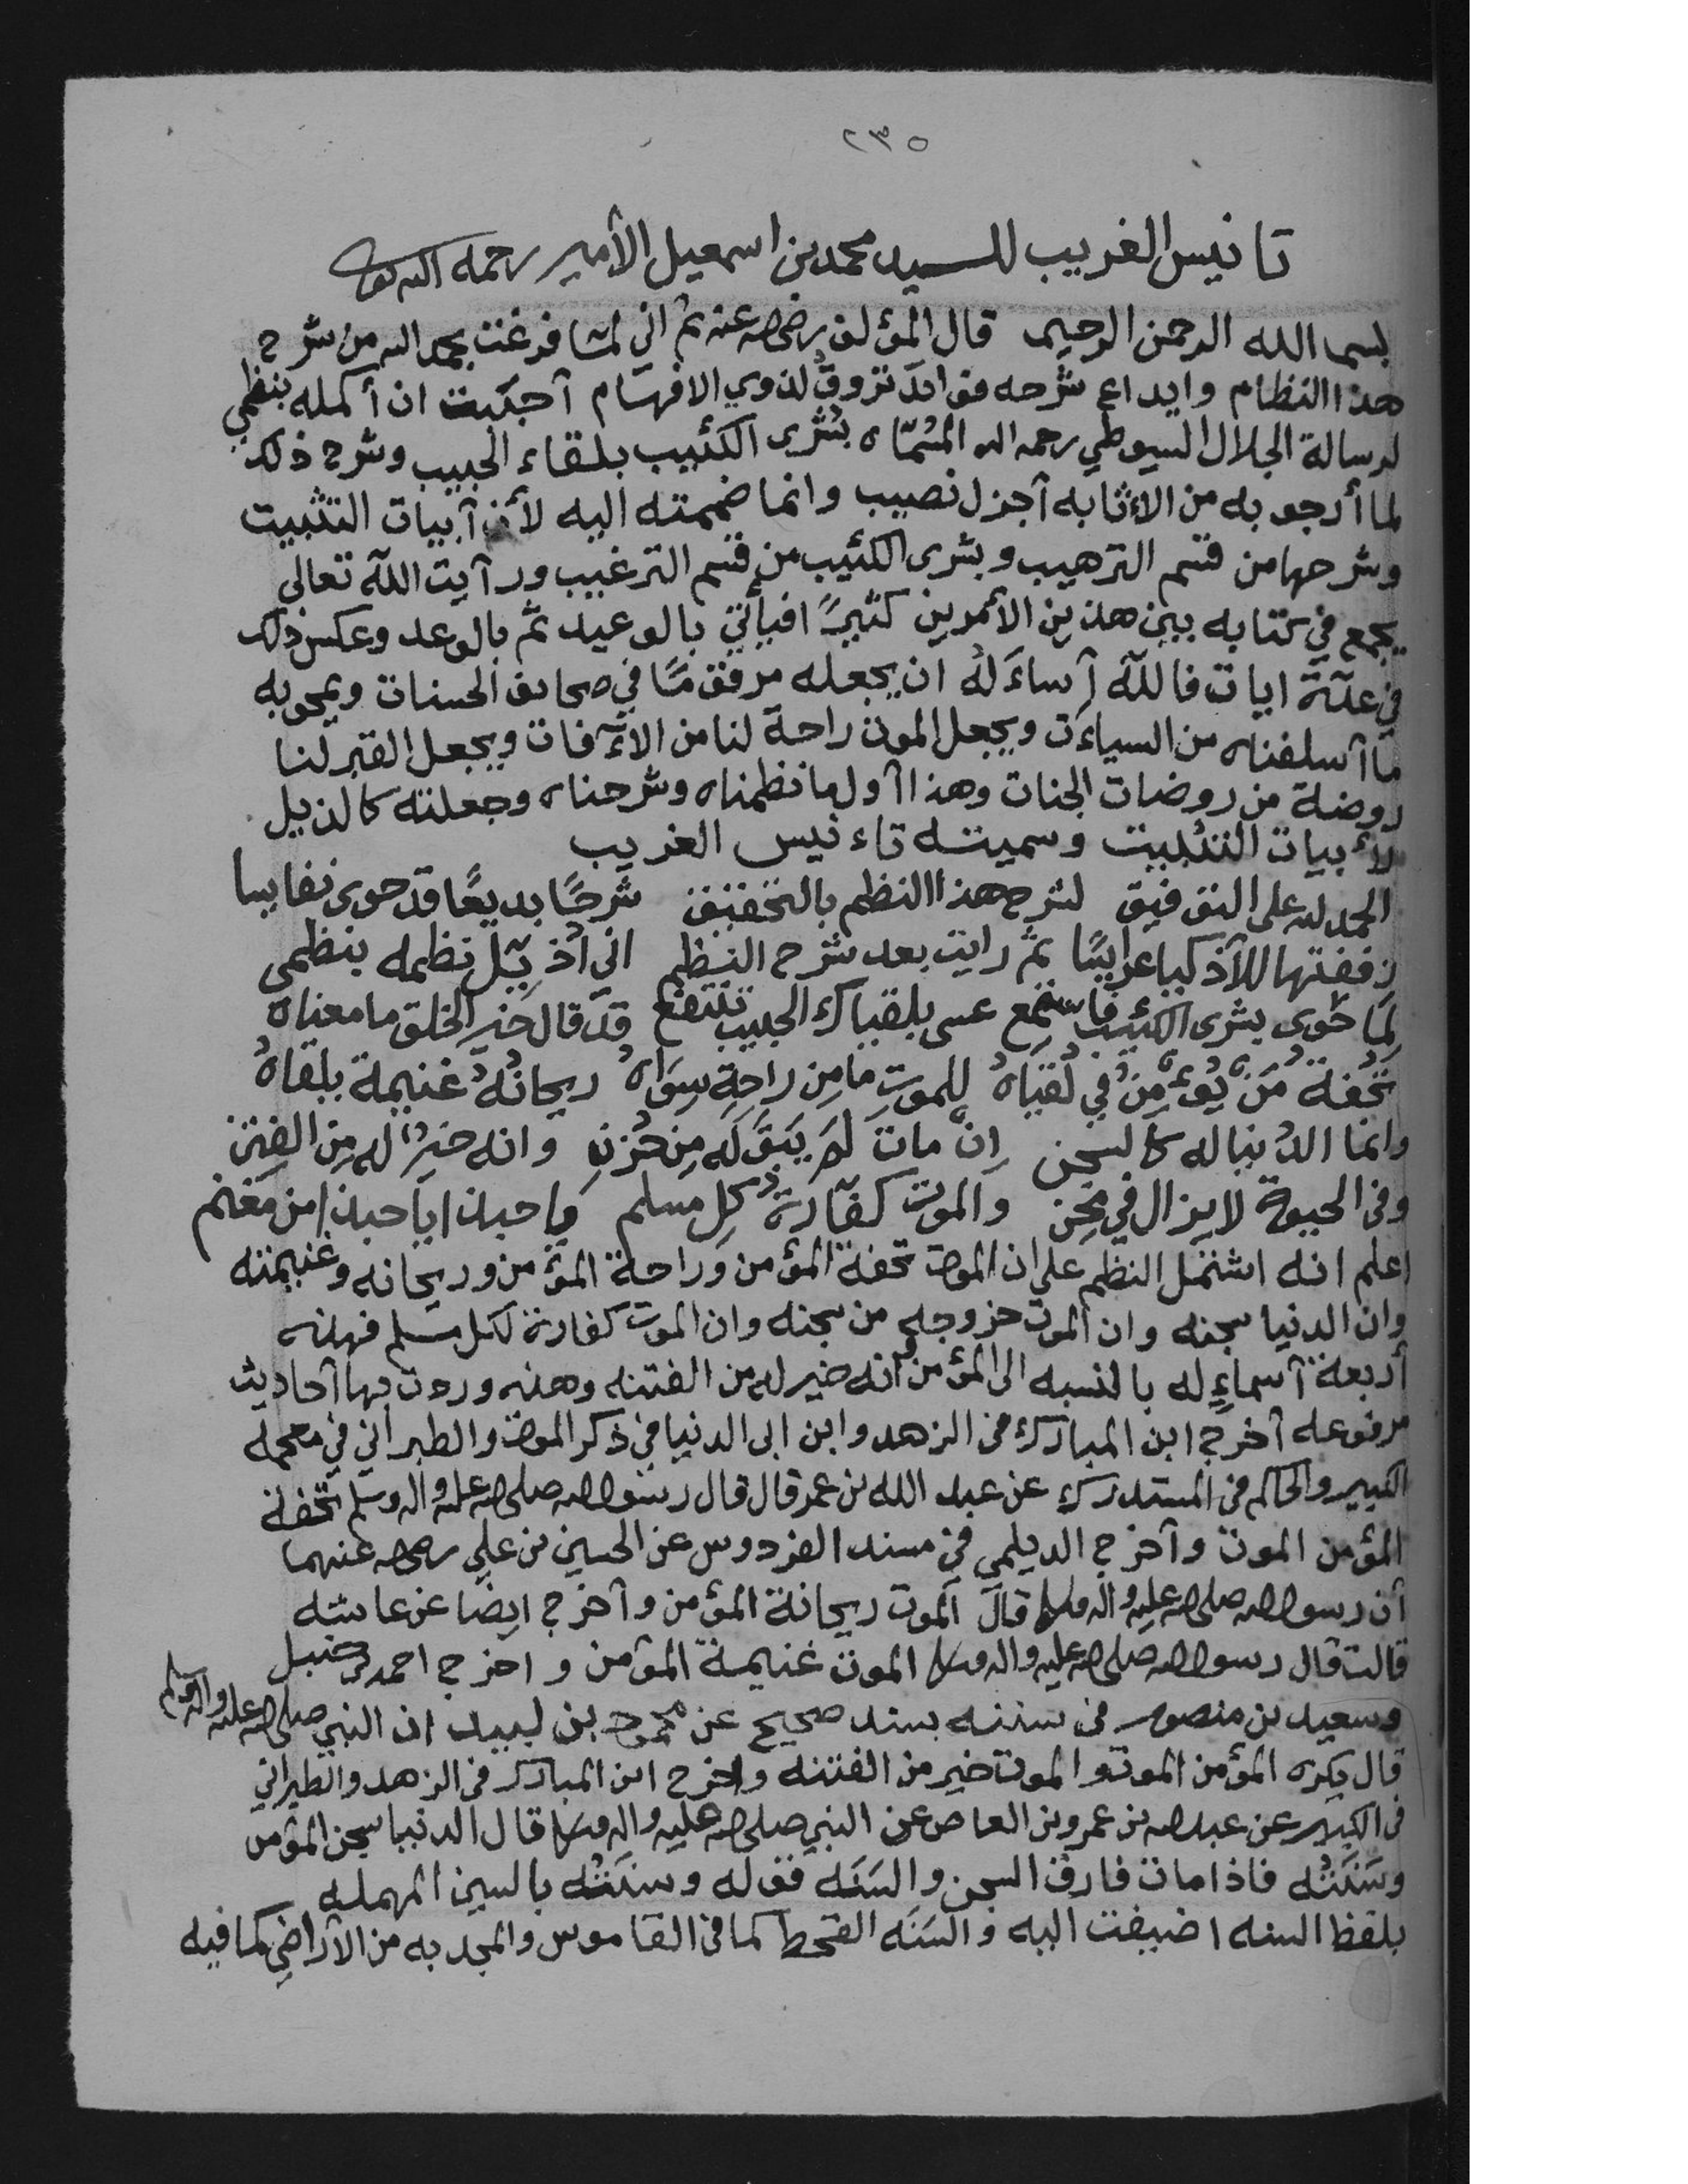 ٢٣٥
تانيس الغريب للسيد محمد بن اسمعيل الأمير رحمه الله
بسم الله الرحمن الرحيم قال المؤلف رضي الله عنه ثم اني لما فرغت بحمد الله من شرح
هذا النظام وايداع شرحه فوائد تروق لذوي الافهام أحببت ان أكمله بنظمي
لرسالة الجلال السيوطي رحمه الله المسماة بشرى الكئيب بلقاء الحبيب وشرح ذلك
لما أرجو به من الاثابه أجزل نصيب وانما ضممته اليه لأن أبيات التثبيت
وشرحها من قسم الترهيب وبشرى الكئيب من قسم الترغيب ورأيت الله تعالى
يجمع في كتابه بين هذين الأمرين كثيرًا فيأتي بالوعيد ثم بالوعد وعكس ذلك
في عدّة ايات فالله أساءله ان يجعله مرقومًا في صحايف الحسنات ويمحو به
ما أسلفناه من السياءت ويجعل الموت راحة لنا من الآفات ويجعل القبر لنا
روضة من روضات الجنات وهذا أول ما نظمناه وشرحناه وجعلته كالذيل
لأبيات التثبيت وسميته تاءنيس الغريب
الحمد لله على التوفيق لشرح هذا النظم بالتحقيق شرحًا بديعًا قد حوى نفايسا
زففتها للأذكيا عرايسًا ثمّ رايت بعد شرح النظم اني أذيّل نظمه بنظمي
لِمَا حَوى بشرى الكئيب فاستمع عسى بلقياك الحبيب تنتفع قد قال خير الخلق ما معناه
تُحْفَةُ مَن يُؤمِنُ في لُقيَاهُ للموتِ مَا مِن راحةٍ سِوَاهُ ريحانُهُ غنيمة يلقاهُ
وانما الدُنيا له كالسجن إن مات لم يَبْقَ له مِن حُزن وانه خيرٌ له مِن الفِتن
وفي الحيوة لا يزال في مِحن والموت كفّارة كل مسلم يا حبذا يا حبذا من مغنم
اعلم انه اشتمل النظم على ان الموت تحفة المؤمن وراحة المؤمن وريحانه وغنيمته
وان الدنيا سجنه وان الموت خروجه من سجنه وان الموت كفارة لكل مسلم فهذه
أربعة أسماءٍ له بالنسبه الى المؤمن وانه خير له من الفتنه وهذه وردت بها أحاديث
مرفوعه أخرج ابن المبارك في الزهد وابن ابى الدنيا في ذكر الموت والطبراني في معجمه
الكبير والحاكم في المستدرك عن عبد الله بن عمر قال قال رسول الله صلى الله عليه واله وسلم تحفة
المؤمن الموت وأخرج الديلمي في مسند الفردوس عن الحسين بن علي رضي الله عنهما
أن رسول الله صلى الله عليه واله وسلم قال الموت ريحانة المؤمن وأخرج ايضًا عن عائشه
قالت قال رسول الله صلى الله عليه واله وسلم الموت غنيمة المؤمن واخرج احمد بن حنبل
وسعيد بن منصور في سننه بسند صحيح عن محمود بن لبيد ان النبي صلى الله عليه واله وسلم
قال يكره المؤمن الموت والموت خير من الفتنه واخرج ابن المبارك في الزهد والطبراني
في الكبير عن عبد الله بن عمرو بن العاص عن النبي صلى الله عليه واله وسلم قال الدنيا سجن المؤمن
وسَنَتُه فاذا مات فارق السجن والسَنَه فقوله وسنَتُه بالسين المهمله
بلفظ السنه اضيفت اليه والسَنَه القحط كما في القاموس والمجدبه من الأراضي كما فيه